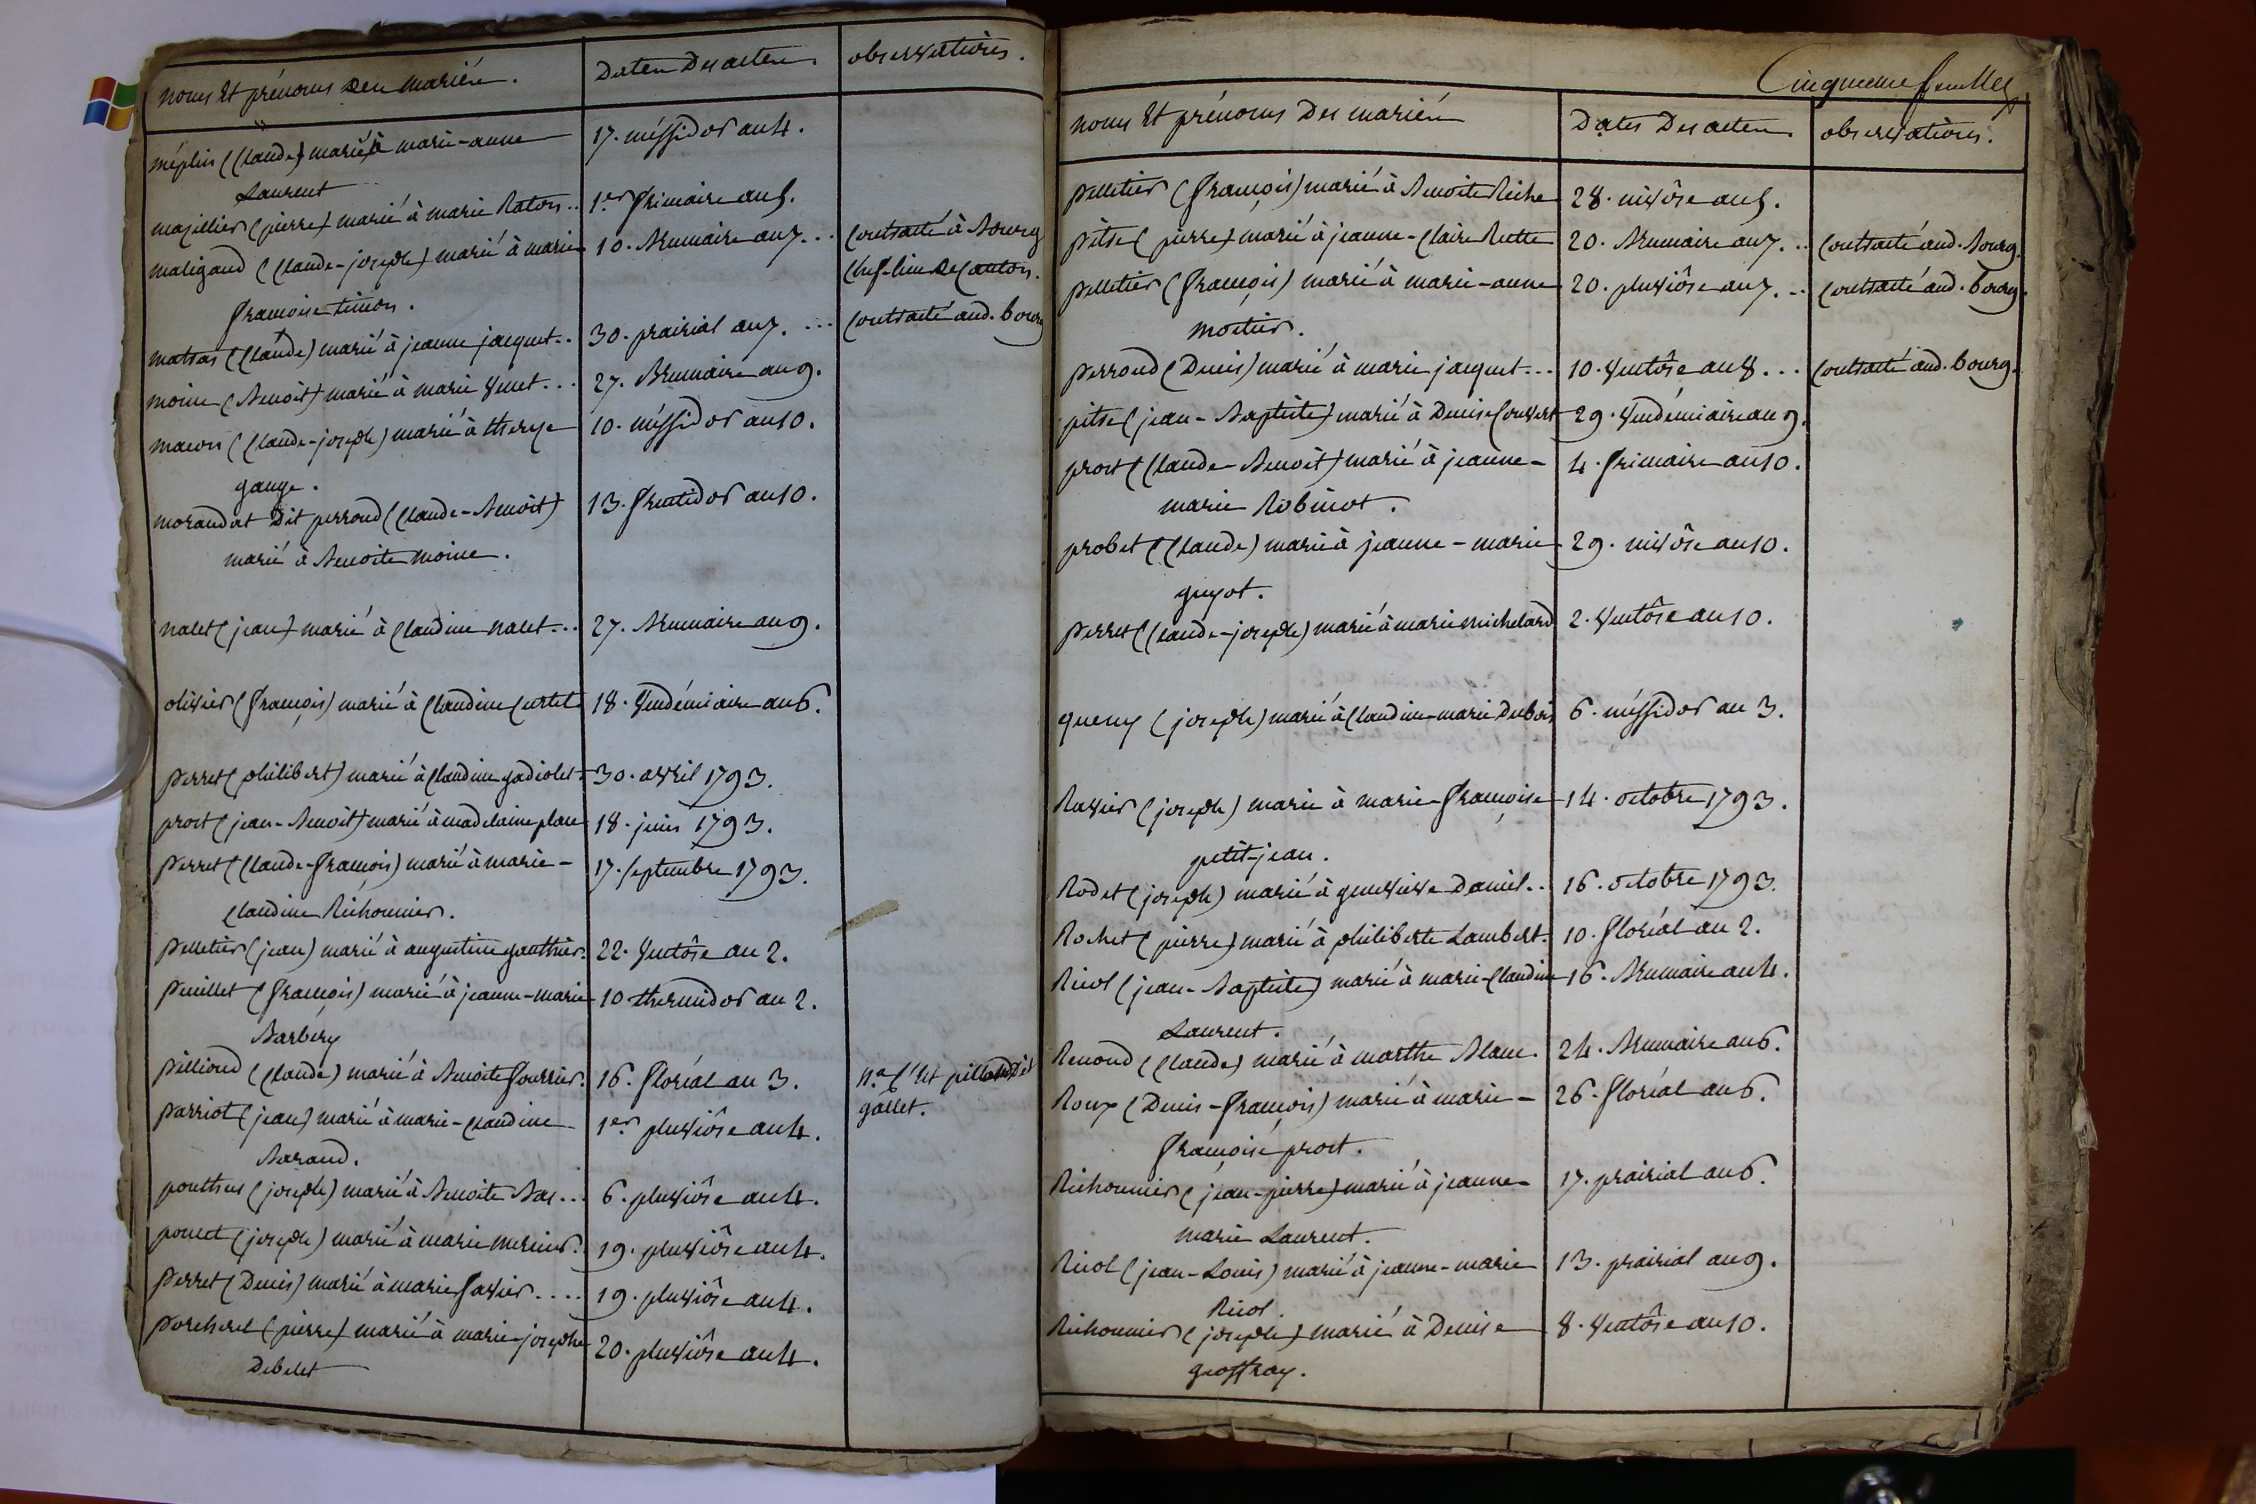 noms et prénoms des mariés. Dates des actes observations.
méplin (Claude) marié à marie-anne 17. méssidor an 4.
Laurent
mazillier (pierre) marié à marie Raton.. 1.er frimaire an 5.
maligaud (Claude-joseph) marié à marie 10. Brumaire an 7... Contracté à Bourg
françoise timon. Chef-lieu de Canton.
matras (Claude) marié à jeanne jacquet.. 30. prairial an 7. ... Contracté aud. bourg
moine (Benoit) marié à marie venet... 27. Brumaire an 9.
macon (Claude-joseph) marié à therese 10. méssidor an 10.
gange.
morandat dit perroud (Claude-Benoit) 13. fructidor an 10.
marié à Benoite moine.
nalet (jean) marié à Claudine nalet... 27. Brumaire an 9.
olivier (françois) marié à Claudine Curtet 18. vendémiaire an 6.
perret (philibert) marié à Claudine gadiolet 30. avril 1793.
prost (jean-Benoit) marié à madelaine 18. juin 1793.
perret (Claude-françois) marié à marie- 17. septembre 1793.
Claudine Richonnier.
pelletier (jean) marié à augustine gauthier. 22. ventôse an 2.
peuillet (françois) marié à jeanne-marie 10 thermidor an 2.
Barbery
pillioud (Claude) marié à Benoite fournier. 16. floréal an 3. n.a C'est dit
parriot (jean) marié à marie-Claudine 1er pluviôse an 4. gallet.
Baraud.
pouthus (joseph) marié à Benoite Bas... 6. pluviôse an 4.
poncet (joseph) marié à marie mercier. 19. pluviôse an 4.
perret (Denis) marié à marie favier.... 19. pluviôse an 4.
porcheret (pierre) marié à marie-josephe 20. pluviôse an 4.
Debelet
Cinquieme feuillet
noms et prénoms des mariés Dates des actes observations.
pelletier (françois) marié à Benoite Riche 28. nivôse an 5.
pitre (pierre) marié à jeanne-Claire Rette 20. Brumaire an 7... Contracté aud. Bourg.
pelletier (françois) marié à marie-anne 20. pluviôse an 7... Contracté aud. bourg.
mortier.
perroud (Denis) marié à marie jacquet... 10. ventôse an 8... Contracté aud. bourg.
pitre (jean-Baptiste) marié à Denise Convert 29. vendémiaire an 9.
prost (Claude-Benoit) marié à jeanne- 4. frimaire an 10.
marie Robinot.
probet (Claude) marié à jeanne-marie 29. nivôse an 10.
guyot.
perret (Claude-joseph) marié à marie michelard 2. ventôse an 10.
queny (joseph) marié à Claudine-marie Dubois 6. méssidor an 3.
Ravier (joseph) marié à marie-françoise 14. octobre 1793.
petit-jean.
Rodet (joseph) marié à genevieve Daniel.. 16. octobre 1793.
Rochet (pierre) marié à philiberte Lambert. 10. floréal an 2.
Ricol (jean-Baptiste) marié à marie-Claudine 16. Brumaire an 4.
Laurent.
Renoud (Claude) marié à marthe Blanc. 24. Brumaire an 6.
Roux (Denis-françois) marié à marie- 26. floréal an 6.
françoise prost.
Richonnier (jean-pierre) marié à jeanne- 17. prairial an 6.
marie Laurent.
Ricol (jean-Louis) marié à jeanne-marie 13. prairial an 9.
Ricol.
Richonnier (joseph) marié à Denise 8. ventôse an 10.
geoffray.